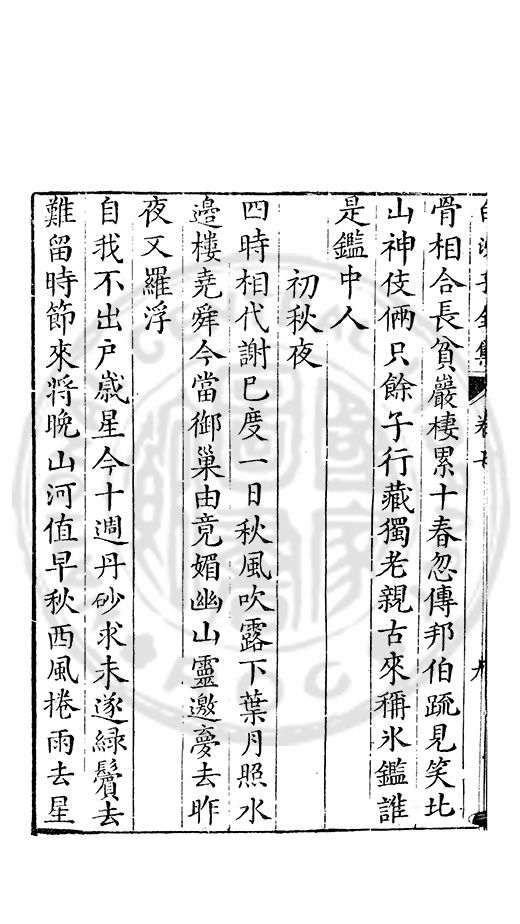 白沙子全集 卷七 九
骨相合長貧巖棲累十春忽傳邦伯疏見笑北
山神伎倆只餘子行藏獨老親古來稱氷鑑誰
是鑑中人
初秋夜
四時相代謝已度一日秋風吹露下葉月照水
邉樓堯舜今當御巢由竟媚幽山靈邀夢去昨
夜又羅浮
自我不出戶歲星今十週丹砂求未遂綠鬢去
難留時節來將晚山河值早秋西風捲雨去星